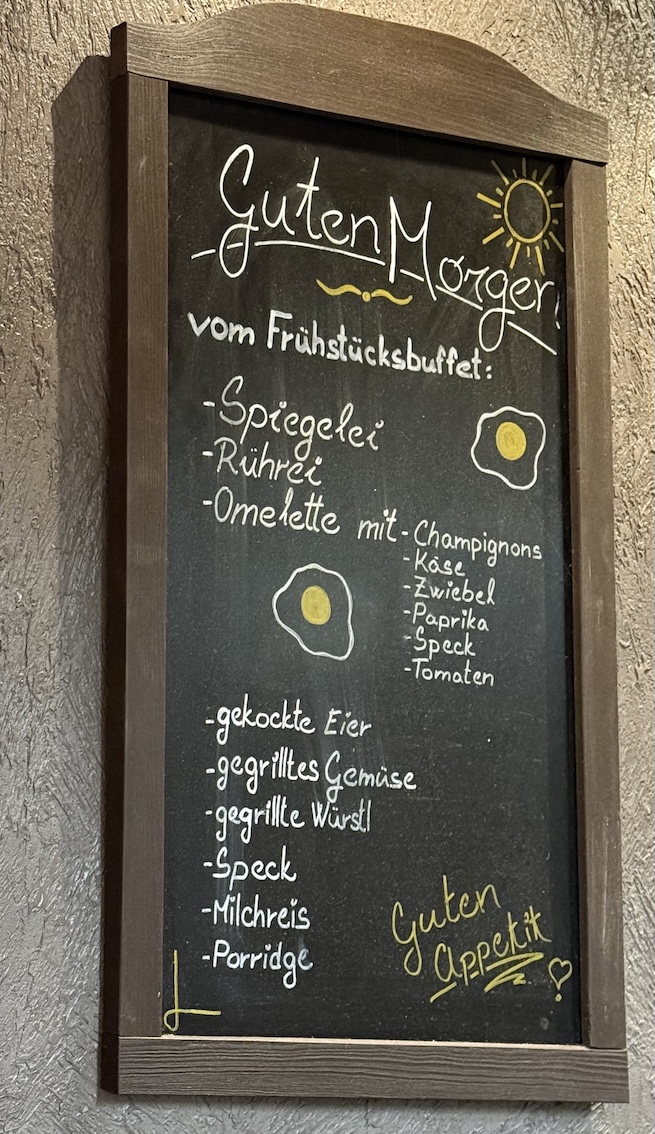 Guten Morgen!
vom Frühstücksbuffet:
-Spiegelei
-Rührei
-Omelette mit -Champignons
-Käse
-Zwiebel
-Paprika
-Speck
-Tomaten
-gekockte Eier
-gegrilltes Gemüse
-gegrillte Würstl
-Speck
-Milchreis
-Porridge
Guten
Appetit